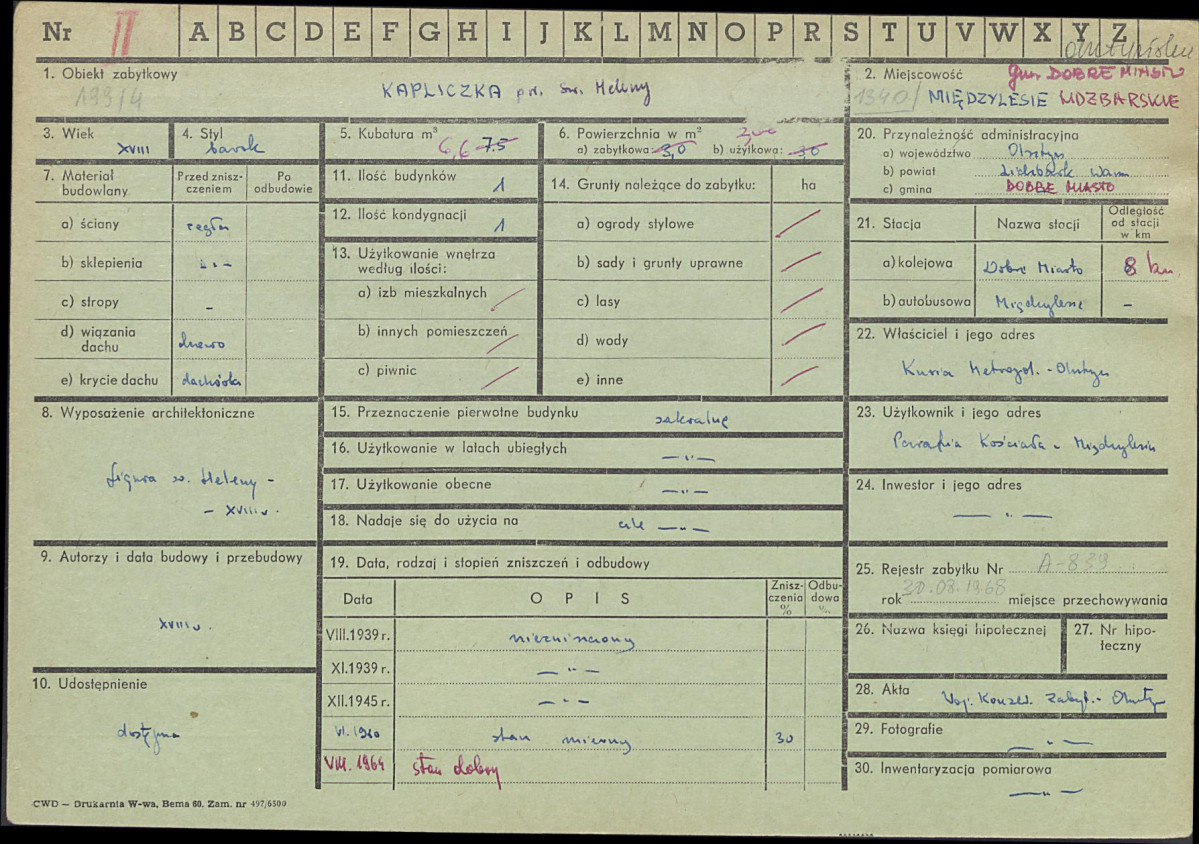 Nr II A B C D E F G H I J K L M N O P R S T U V W X Y Z
olsztyńskie
1. Obiekt zabytkowy
199/4
KAPLICZKA p.w. św. Heleny
2. Miejscowość
gm. DOBRE MIASTO
1340/ MIĘDZYLESIE LIDZBARSKIE
3. Wiek
XVIII
4. Styl
barok
5. Kubatura m³
6,6 7.5
6. Powierzchnia w m²
a) zabytkowa: 3,0 b) użytkowa: 3,0
20. Przynależność administracyjna
a) województwo Olsztyn
b) powiat Lidzbark Warm
c) gmina DOBRE MIASTO
7. Materiał budowlany
Przed znisz-czeniem
Po odbudowie
a) ściany cegła
b) sklepienia - " -
c) stropy -
d) wiązania dachu drewno
e) krycie dachu dachówka
11. Ilość budynków 1
12. Ilość kondygnacji 1
13. Użytkowanie wnętrza według ilości:
a) izb mieszkalnych
b) innych pomieszczeń
c) piwnic
14. Grunty należące do zabytku: ha
a) ogrody stylowe
b) sady i grunty uprawne
c) lasy
d) wody
e) inne
21. Stacja
Nazwa stacji
Odległość od stacji w km
a) kolejowa Dobre Miasto 8 km.
b) autobusowa Międzylesie -
22. Właściciel i jego adres
Kuria Metropol. - Olsztyn
8. Wyposażenie architektoniczne
figura św. Heleny -
- XVIII w.
15. Przeznaczenie pierwotne budynku sakralne
16. Użytkowanie w latach ubiegłych - " -
17. Użytkowanie obecne - " -
18. Nadaje się do użycia na cele - " -
23. Użytkownik i jego adres
Parafia Kościoła - Międzylesiu
24. Inwestor i jego adres
- " -
9. Autorzy i data budowy i przebudowy
XVIII w.
19. Data, rodzaj i stopień zniszczeń i odbudowy
Data OPIS Znisz-czenia % Odbu-dowa %
VIII.1939 r. niezniszczony
XI.1939 r. - " -
XII.1945 r. - " -
VI. 1960 stan mierny 30
VIII. 1964 stan dobry
25. Rejestr zabytku Nr A-839
rok 30.08.1968 miejsce przechowywania
26. Nazwa księgi hipotecznej
27. Nr hipo-teczny
10. Udostępnienie
dostępna
28. Akta Woj. Konserw. Zabyt. - Olsztyn
29. Fotografie - " -
30. Inwentaryzacja pomiarowa
- " -
CWD — Drukarnia W-wa, Bema 60, Zam. nr 497/6500